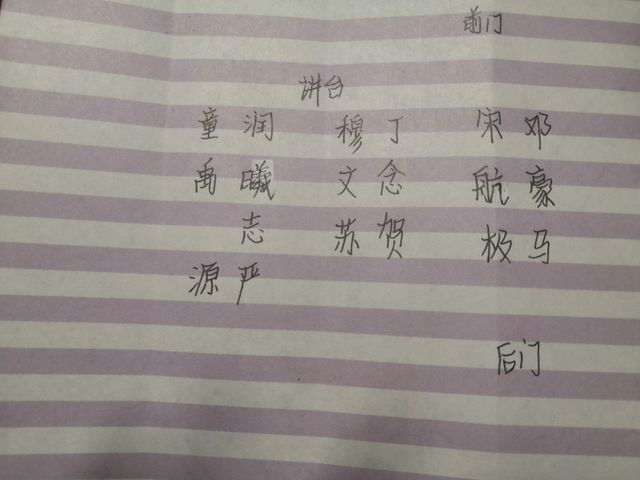 前门
讲台
童 润 穆 丁 宋 邓
禹 曦 文 念 航 豪
志 苏 贺 极 马
源 严
后门